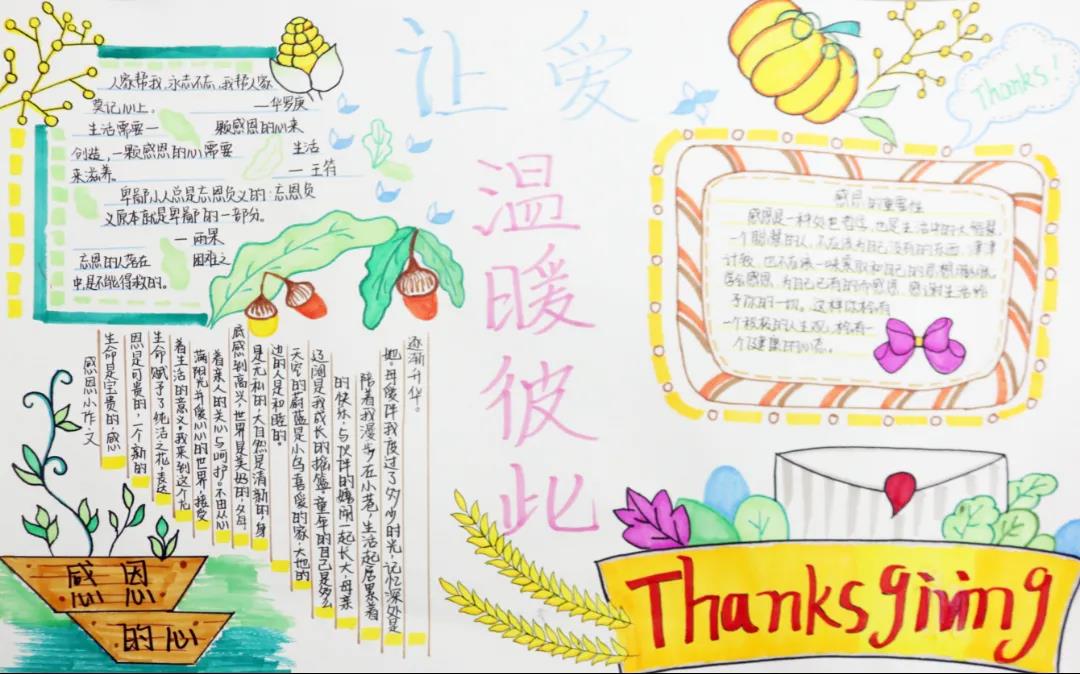 让爱
温暖彼此
人家帮我,永志不忘,我帮人家
莫记心上。 —华罗庚
生活需要一 颗感恩的心来
创造,一颗感恩的心需要 生活
来滋养。 —王符
卑鄙小人总是忘恩负义的:忘恩负
义原本就是卑鄙的一部分。
—雨果
忘恩的人落在 困难之
中是不能得救的。
感恩小作文
生命是宝贵的,感
恩是可贵的,一个新的
生命赋予了纯洁之花,表达
着生活的意义。我来到这个充
满阳光并爱心的世界,接受
着亲人的关心与呵护。不由从心
底感到高兴,世界是美好的,父母
是无私的,大自然是清新的,身
边的人是和睦的。
天空的蔚蓝是小鸟喜爱的家,大地的
辽阔是我成长的摇篮。童年的自己是多么
的快乐,与伙伴的嬉闹一起长大,母亲
陪着我漫步在小巷,生活起居累着
她,母爱伴我度过了多少时光,记忆深处是
逐渐升华。
感恩
的心
Thanks!
感恩的重要性
感恩是一种处世哲学,也是生活中的大智慧。
一个聪慧的人,不应该为自己没有的东西,津津
计较,也不应该一味索取和自己的
学会感恩,为自己已有的而感恩,感谢生活给
予你的一切。这样你会有
一个积极的人生观,会有一
个健康的心态。
Thanksgiving